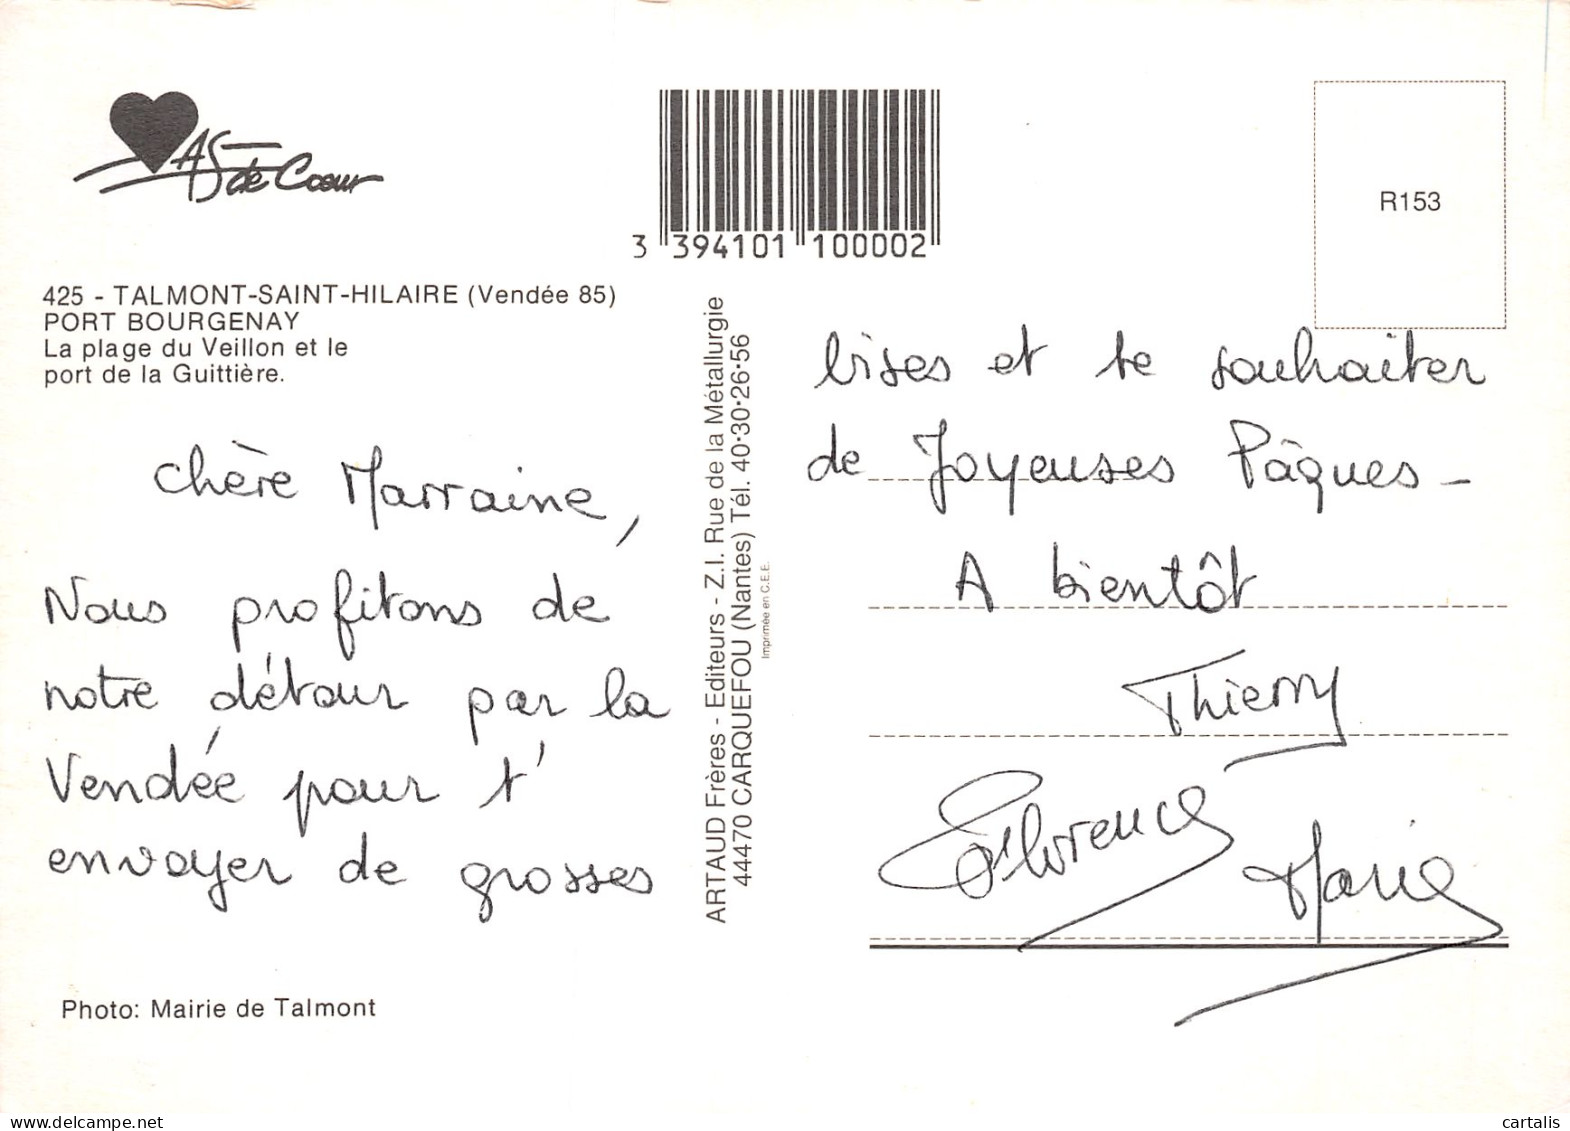 AS de Coeur
3 394101 100002
R153
425 - TALMONT-SAINT-HILAIRE (Vendée 85)
PORT BOURGENAY
La plage du Veillon et le
port de la Guittière.
chère Marraine,
Nous profitons de
notre détour par la
Vendée pour t'
envoyer de grosses
Photo: Mairie de Talmont
ARTAUD Frères - Editeurs - Z.I. Rue de la Métallurgie
44470 CARQUEFOU (Nantes) Tél. 40·30·26·56
Imprimée en C.E.E.
bises et te souhaiter
de Joyeuses Pâques -
A bientôt
Thierry
Florence
Marie
delcampe.net
cartalis